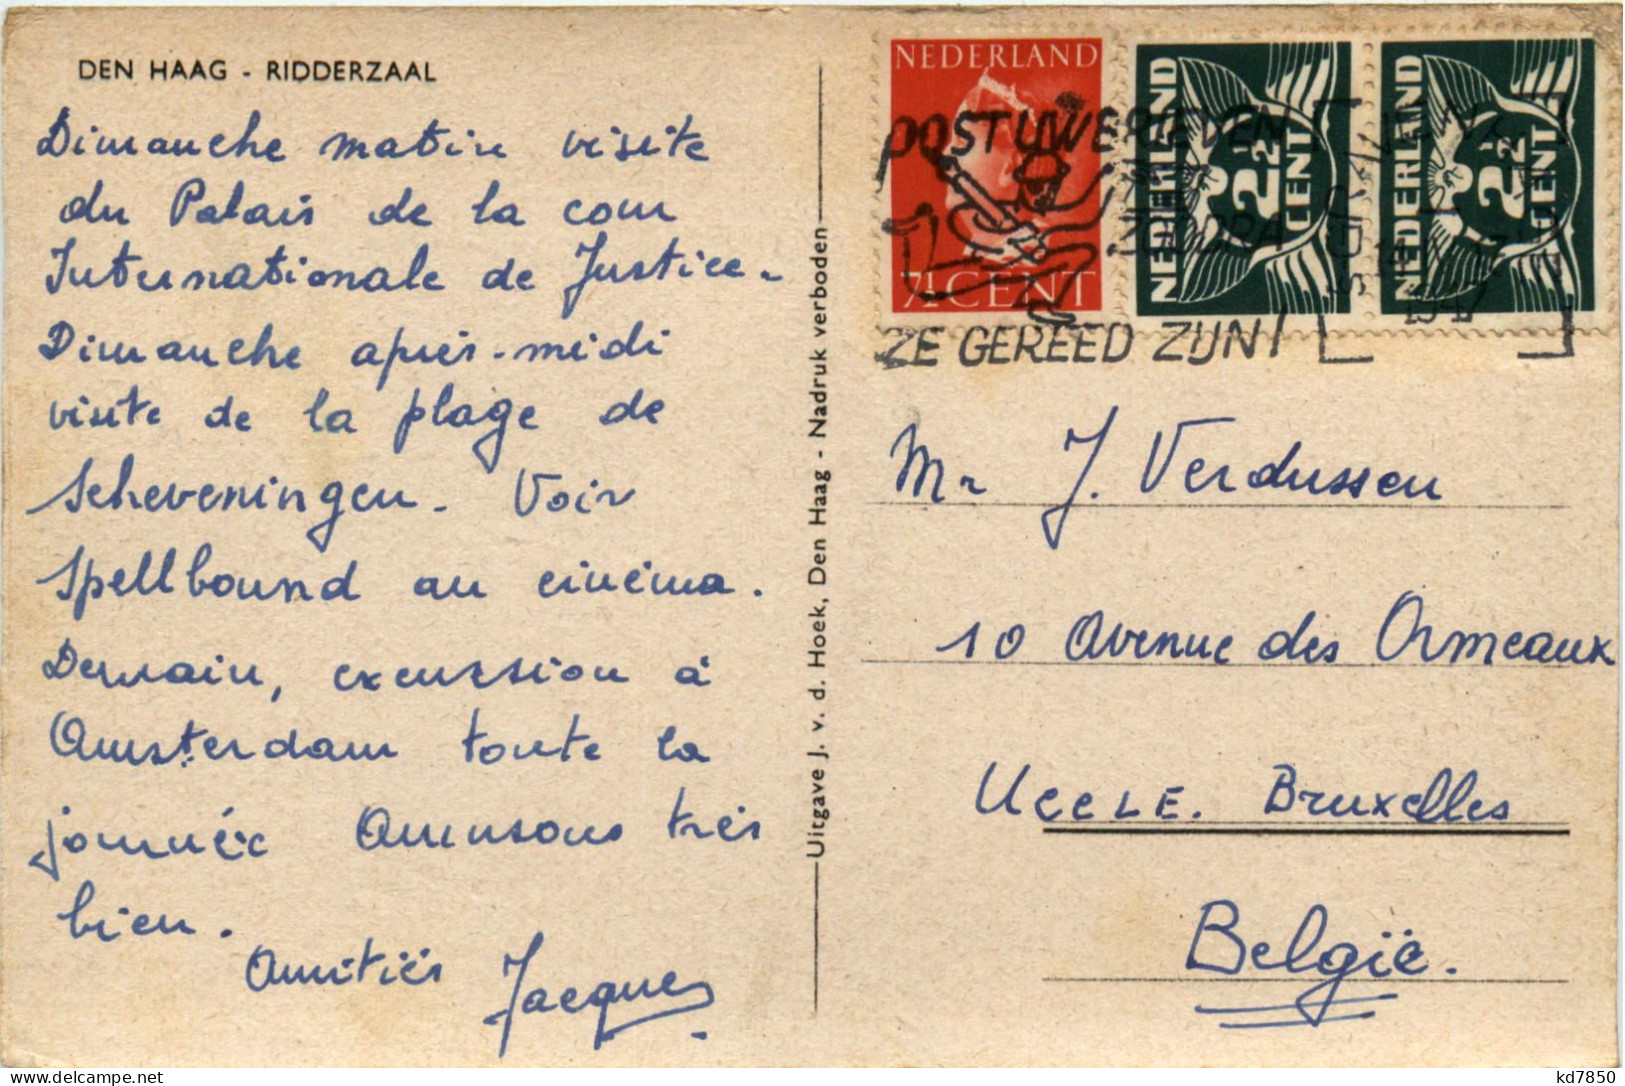 DEN HAAG - RIDDERZAAL
Dimanche matin visite
du Palais de la cour
Internationale de Justice.
Dimanche après-midi
visite de la plage de
Scheveningen. Voir
Spellbound au cinéma.
Demain, excursion à
Amsterdam toute la
journée Amusons très
bien.
Amitiés Jacques
Uitgave J. v. d. Hoek, Den Haag - Nadruk verboden
NEDERLAND
7½ CENT
NEDERLAND
2½
CENT
NEDERLAND
2½
CENT
POST UW BRIEVEN
ZODRA
ZE GEREED ZIJN!
Mr J. Verdussen
10 Avenue des Ormeaux
UCCLE. Bruxelles
Belgïe.
kd7850